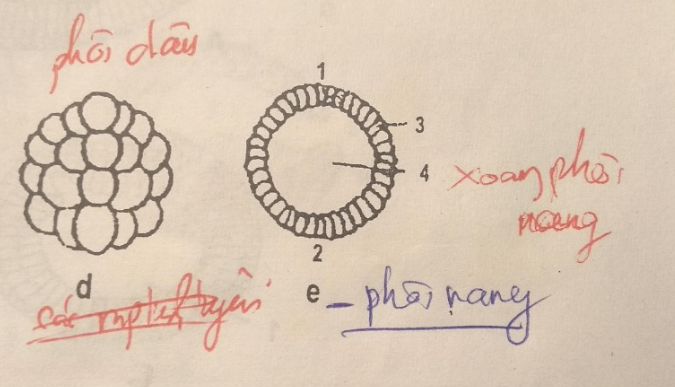 phôi dâu
1
3
4
xoang phôi
nang
2
d
e
– phôi nang